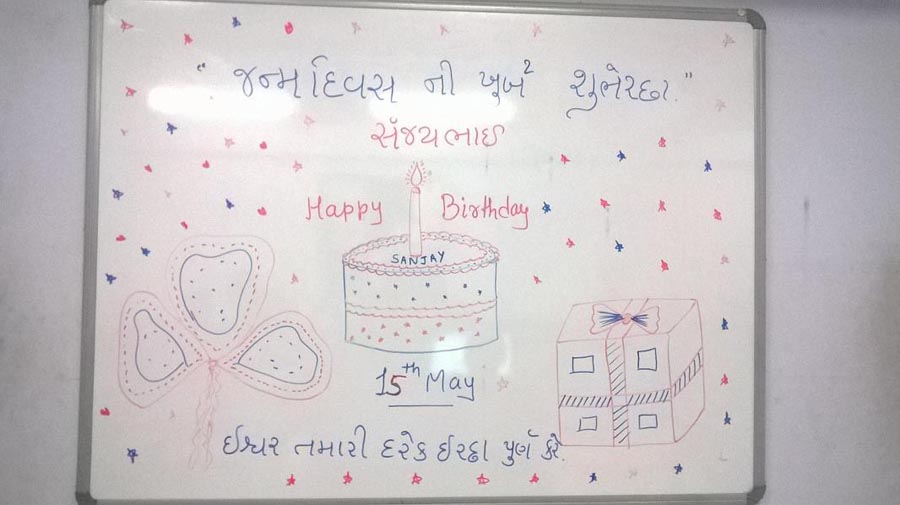 "જન્મદિવસ ની ખુબ² શુભેરછા."
સંજયભાઈ
Happy Birthday
SANJAY
15th May
ઈશ્વર તમારી દરેક ઈરછા પુર્ણ કરે.